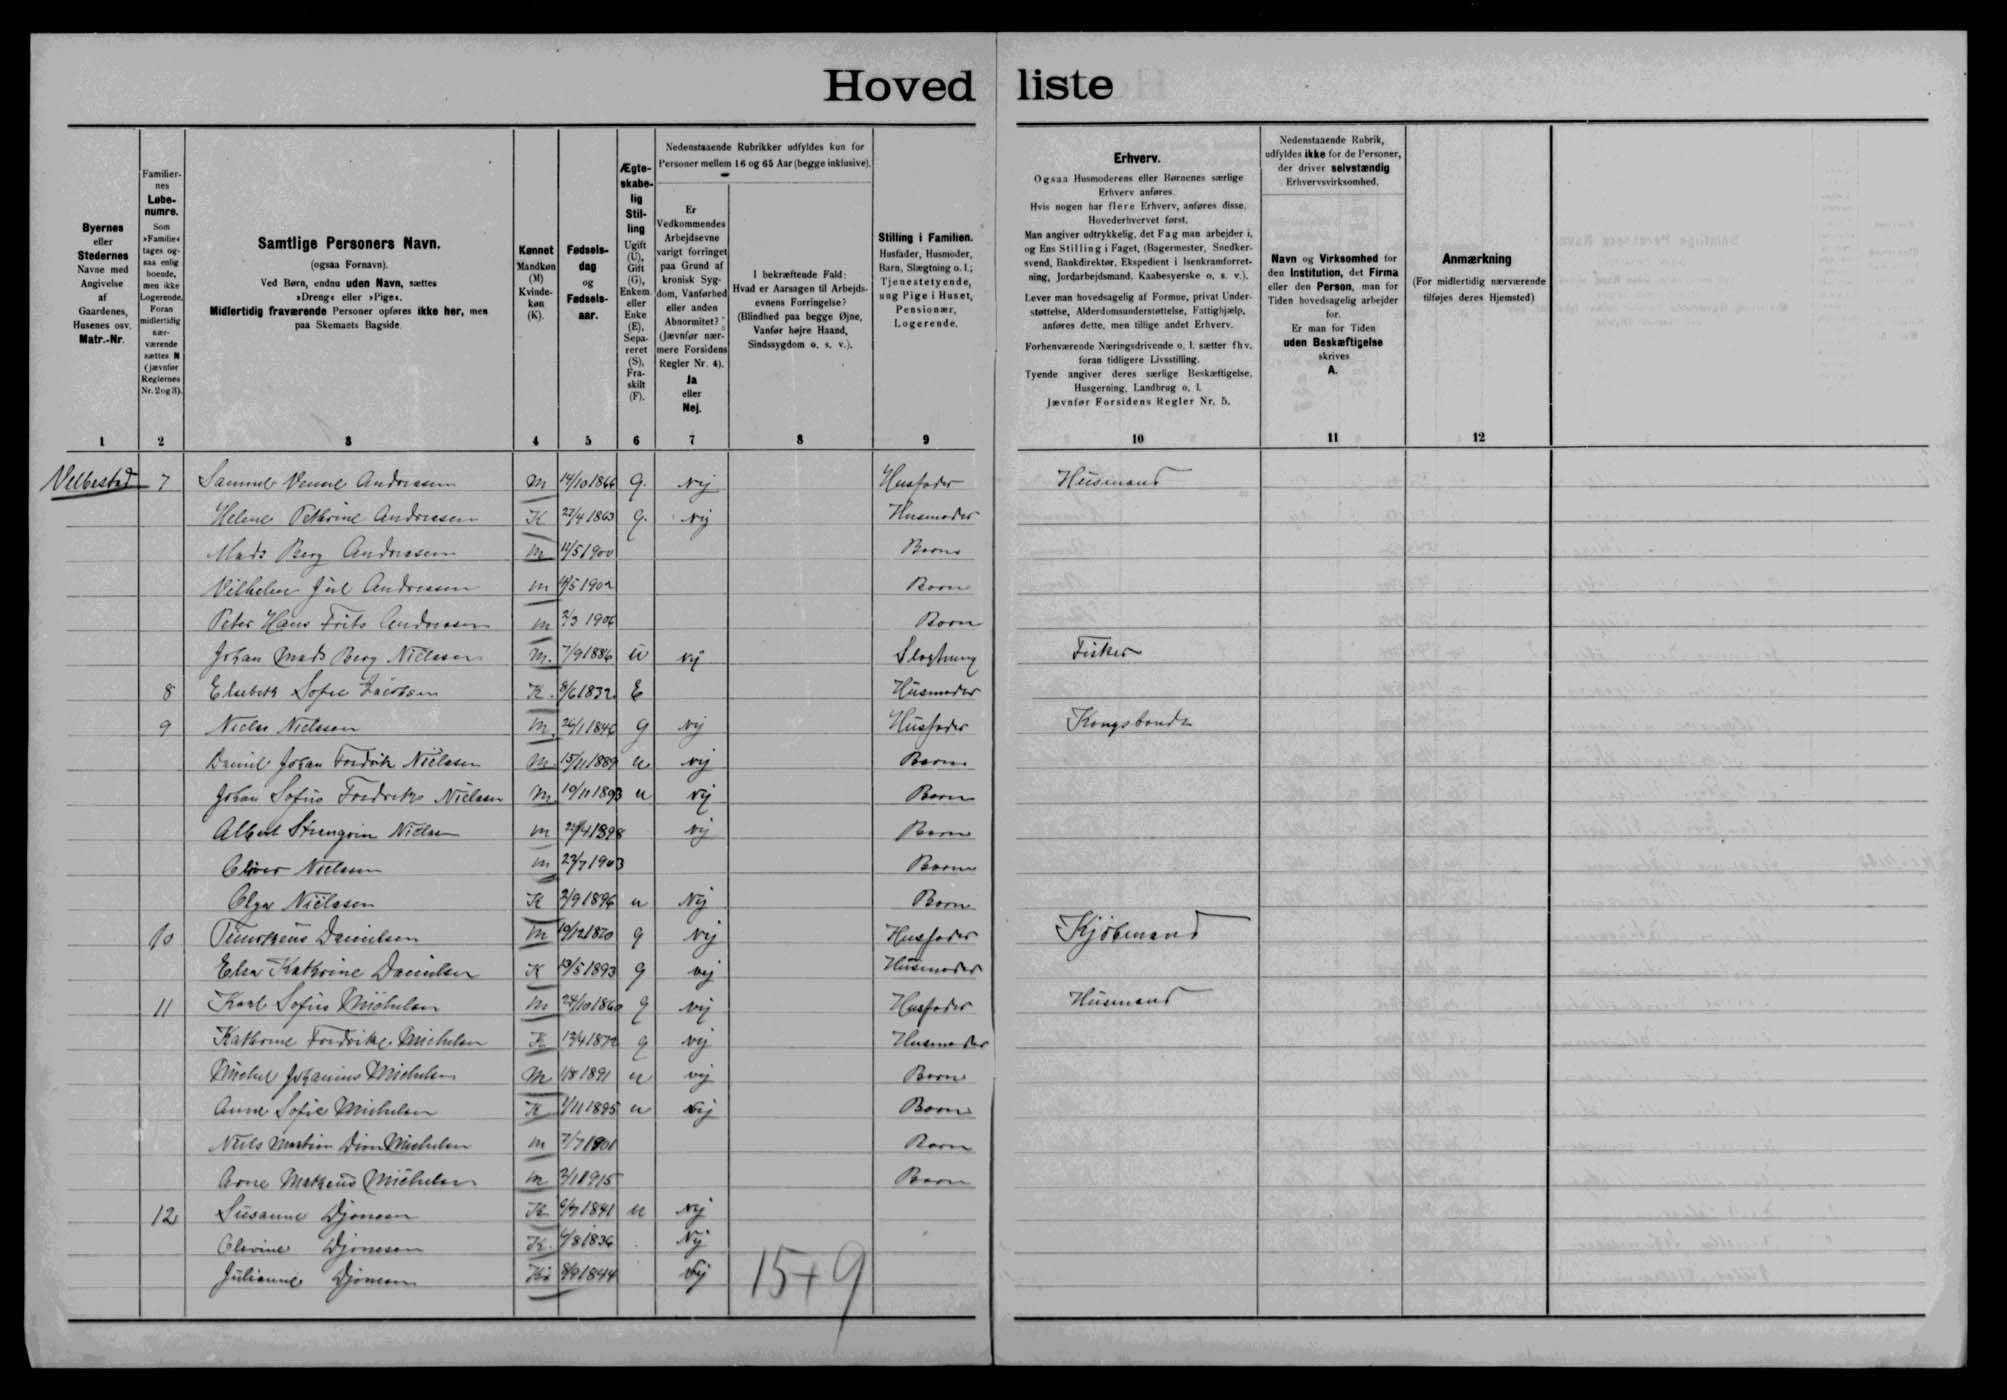 Hoved liste
Byernes
eller
Stedernes
Navne med
Angivelse
af
Gaardenes,
Husenes osv.
Matr.-Nr.
Familier-
nes
Løbe-
numre.
Som
»Familie«
tages og-
saa enlig
boende,
men ikke
Logerende.
Foran
midlertidig
nær-
værende
sættes N
(jævnfør
Reglernes
Nr. 2 og 3).
Samtlige Personers Navn.
(ogsaa Fornavn).
Ved Børn, endnu uden Navn, sættes
»Dreng« eller »Pige«.
Midlertidig fraværende Personer opføres ikke her, men
paa Skemaets Bagside.
Kønnet
Mandkøn
(M)
Kvinde-
køn
(K).
Fødsels-
dag
og
Fødsels-
aar.
Ægte-
skabe-
lig
Stil-
ling
Ugift
(U),
Gift
(G),
Enkem.
eller
Enke
(E),
Sepa-
reret
(S),
Fra-
skilt
(F).
Nedenstaaende Rubrikker udfyldes kun for
Personer mellem 16 og 65 Aar (begge inklusive).
Er
Vedkommendes
Arbejdsevne
varigt forringet
paa Grund af
kronisk Syg-
dom, Vanførhed
eller anden
Abnormitet?
(Jævnfør nær-
mere Forsidens
Regler Nr. 4).
Ja
eller
Nej.
I bekræftende Fald:
Hvad er Aarsagen til Arbejds-
evnens Forringelse?
(Blindhed paa begge Øjne,
Vanfør højre Haand,
Sindssygdom o. s. v.).
Stilling i Familien.
Husfader, Husmoder,
Barn, Slægtning o. l.;
Tjenestetyende,
ung Pige i Huset,
Pensionær,
Logerende.
Erhverv.
Ogsaa Husmoderens eller Børnenes særlige
Erhverv anføres.
Hvis nogen har flere Erhverv, anføres disse.
Hovederhvervet først.
Man angiver udtrykkelig, det Fag man arbejder i,
og Ens Stilling i Faget, (Bagermester, Snedker-
svend, Bankdirektør, Ekspedient i Isenkramforret-
ning, Jordarbejdsmand, Kaabesyerske o. s. v.).
Lever man hovedsagelig af Formue, privat Under-
støttelse, Alderdomsunderstøttelse, Fattighjælp,
anføres dette, men tillige andet Erhverv.
Forhenværende Næringsdrivende o. l. sætter fhv.
foran tidligere Livsstilling.
Tyende angiver deres særlige Beskæftigelse,
Husgerning, Landbrug o. l.
Jævnfør Forsidens Regler Nr. 5.
Nedenstaaende Rubrik,
udfyldes ikke for de Personer,
der driver selvstændig
Erhvervsvirksomhed.
Navn og Virksomhed for
den Institution, det Firma
eller den Person, man for
Tiden hovedsagelig arbejder
for.
Er man for Tiden
uden Beskæftigelse
skrives
A.
Anmærkning
(For midlertidig nærværende
tilføjes deres Hjemsted)
1 2 3 4 5 6 7 8 9 10 11 12
Velbestad 7 Samuel Andreasen M 14/10 1866 G. Nej Husfader Husmand
Helene Pethrine Andreasen K 22/4 1863 G. Nej Husmoder
Mads Berg Andreasen M 11/5 1900 Barn
Vilhelm Jul Andreasen M 5 1902 Barn
Peter Hans Frits Andreasen M 2/3 1906 Barn
Johan Mads Berg Nielsen M. 7/9 1886 U nej Slægtning Fisker
8 Elsebeth Sofie Jacobsen K. 8/6 1832 E Husmoder
9 Niels Nielsen M. 26/1 1846 G nej Husfader Kongsbonde
Daniel Johan Fredrik Nielsen M. 15/11 1889 u nej Barn
Johan Sofus Fredrik Nielsen M. 19/11 1893 u nej Barn
Albert Nielsen M 1898 nej Barn
Oliver Nielsen M 23/7 1903 Barn
Olga Nielsen K 2/9 1896 u Nej Barn
10 Timotheus Danielsen M 19/12 1870 g nej Husfader Kjøbmand
Elsa Kathrine Danielsen K 19/5 1893 g nej Husmoder
11 Karl Sofus Michelsen M 24/10 1860 g nej Husfader Husmand
Kathrine Fredrikke Michelsen K 13/4 1872 g nej Husmoder
Michel Johannus Michelsen M 1/8 1891 u nej Barn
Anne Sofie Michelsen K 1/11 1895 u Nej Barn
Niels Martin Michelsen M 7/7 1901 Barn
Arne Matheus Michelsen M 2/1 1915 Barn
12 Susanne Djonesen K 1841 u Nej
Olevine Djonesen K. 6/8 1836 Nej
Julianne Djonesen K 8/9 1844 Nej
15+9